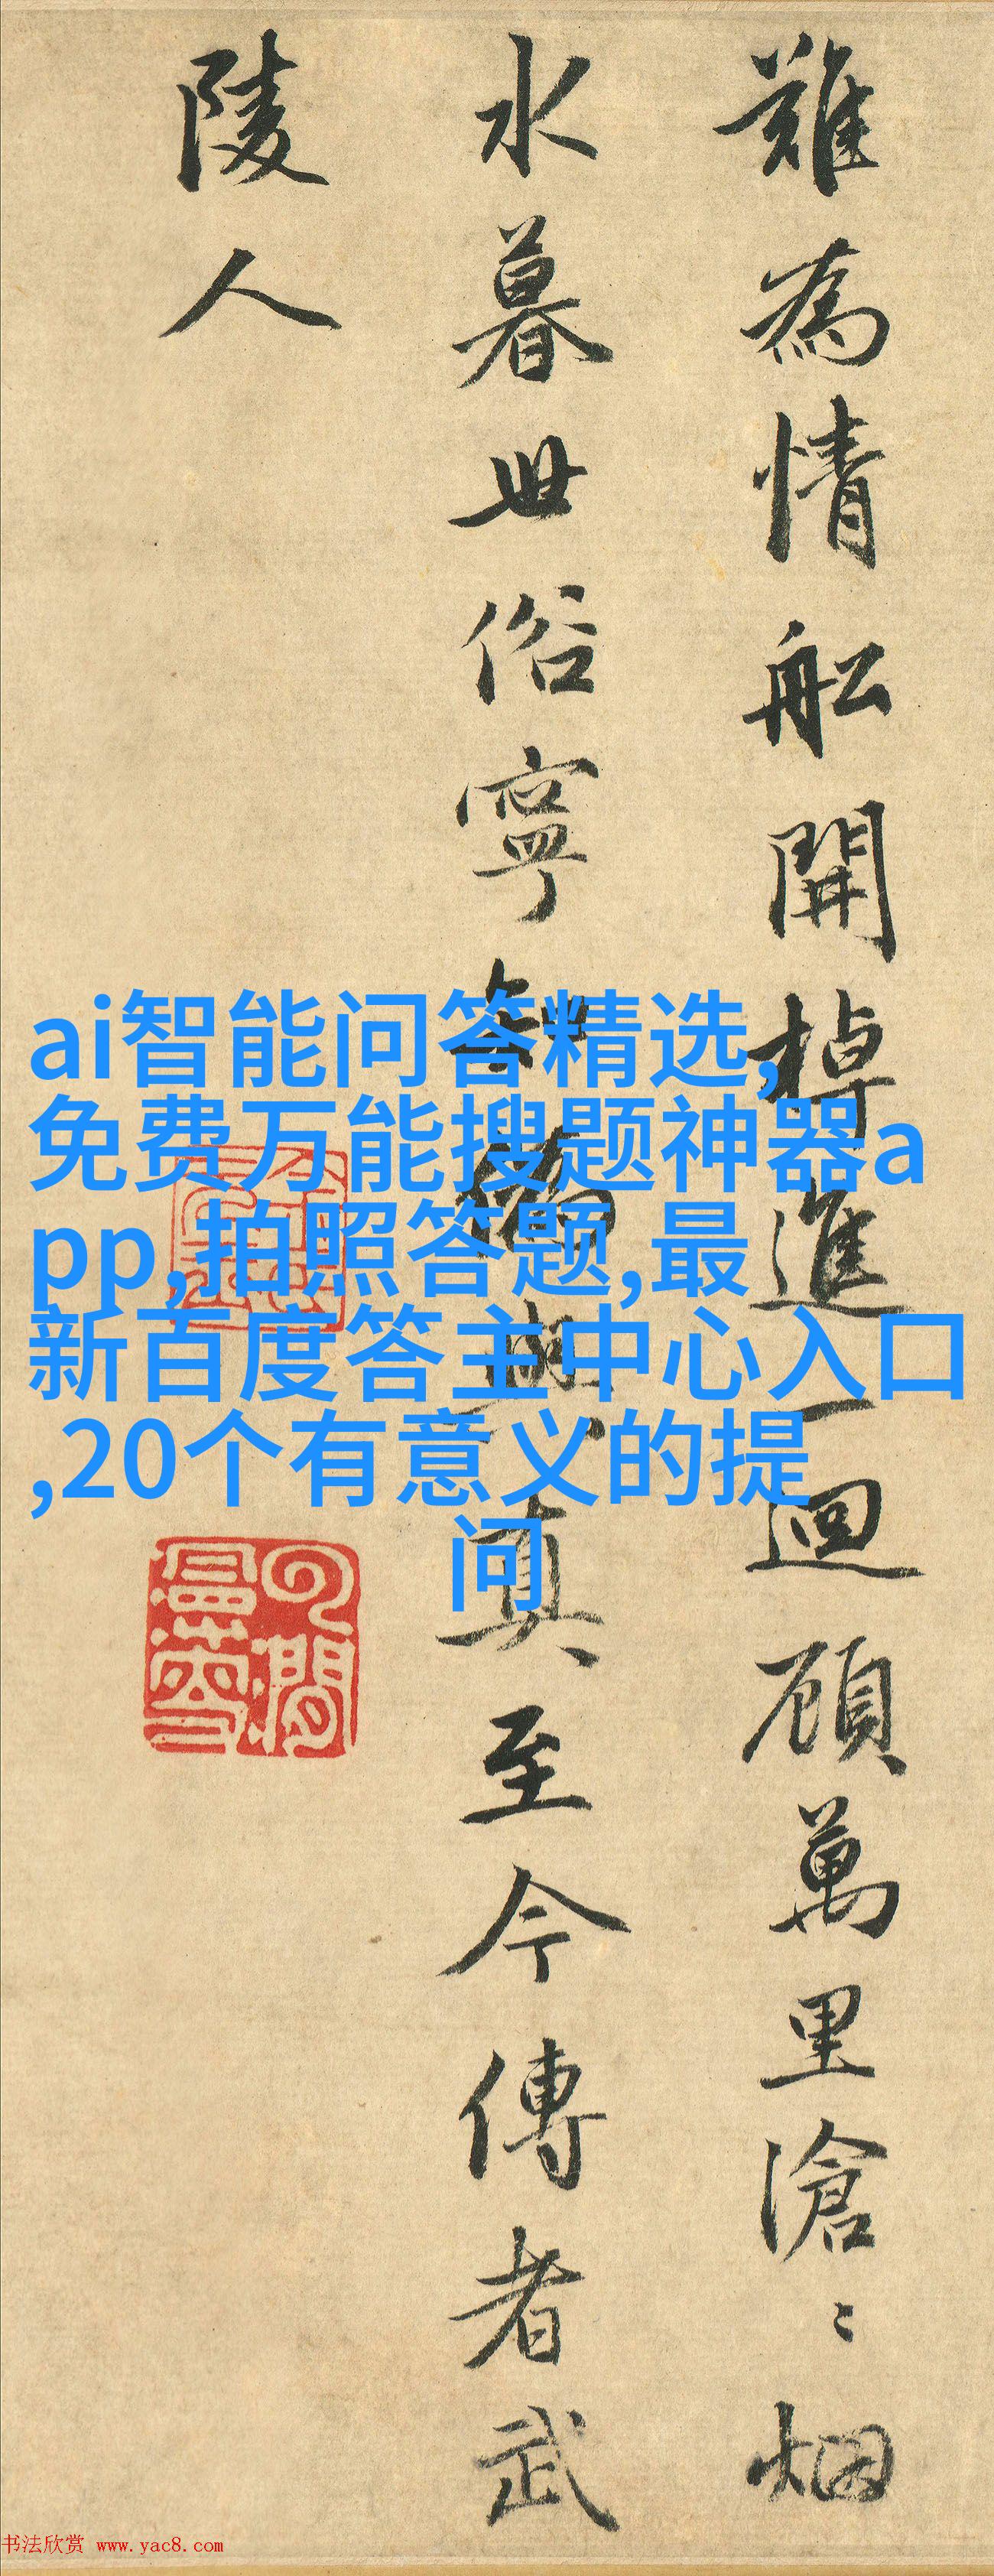 難為情船開棹進一迴顧萬里滄〻烟
水暮世俗寧知偽與真至今傳者武
陵人
ai智能问答精选,
免费万能搜题神器a
pp,拍照答题,最
新百度答主中心入口
,20个有意义的提
问
书法欣赏 www.yac8.com